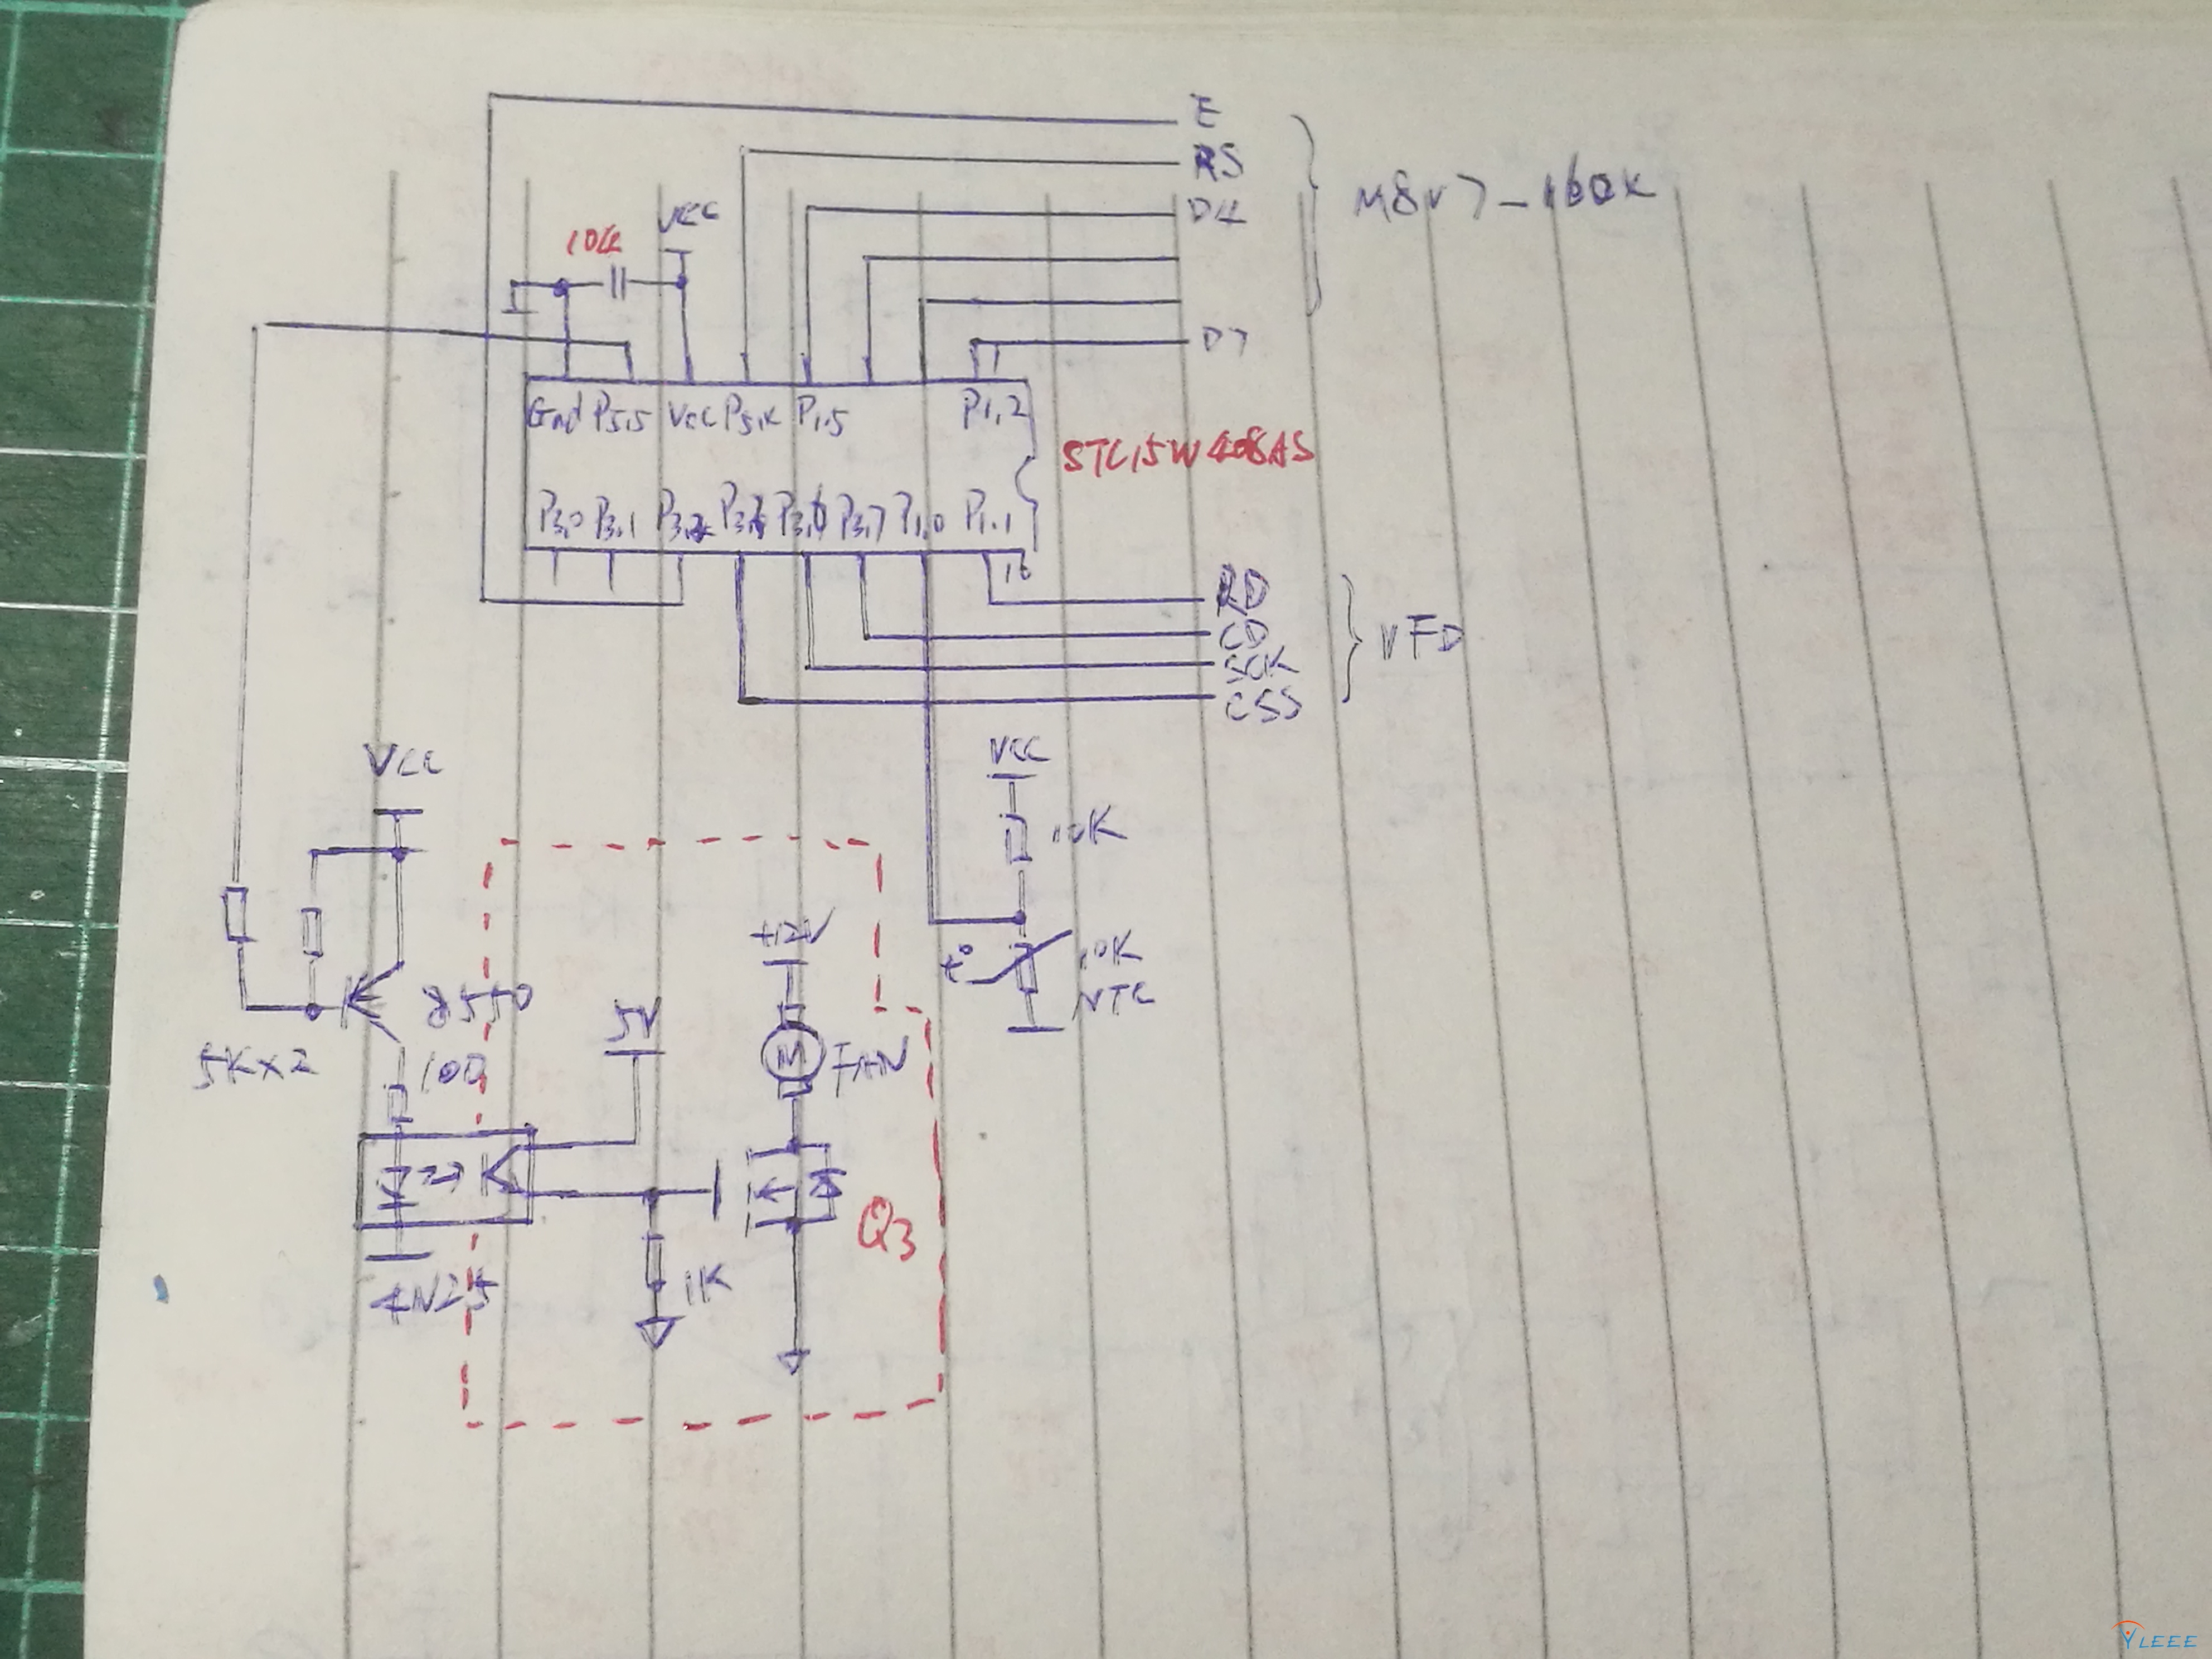 E
RS
D4
M8V7-160K
VCC
104
D7
Gnd P5.5 VCC P5.4 P1.5 P1.2
STC15W408AS
P3.0 P3.1 P3.2 P3.3 P3.6 P3.7 P1.0 P1.1
16
RD
CD
SCK
CSS
VFD
VCC
VCC
10K
+12V
t°
10K
NTC
8550
5V
5K×2
100
FAN
M
Q3
4N25
1K
YLEEE